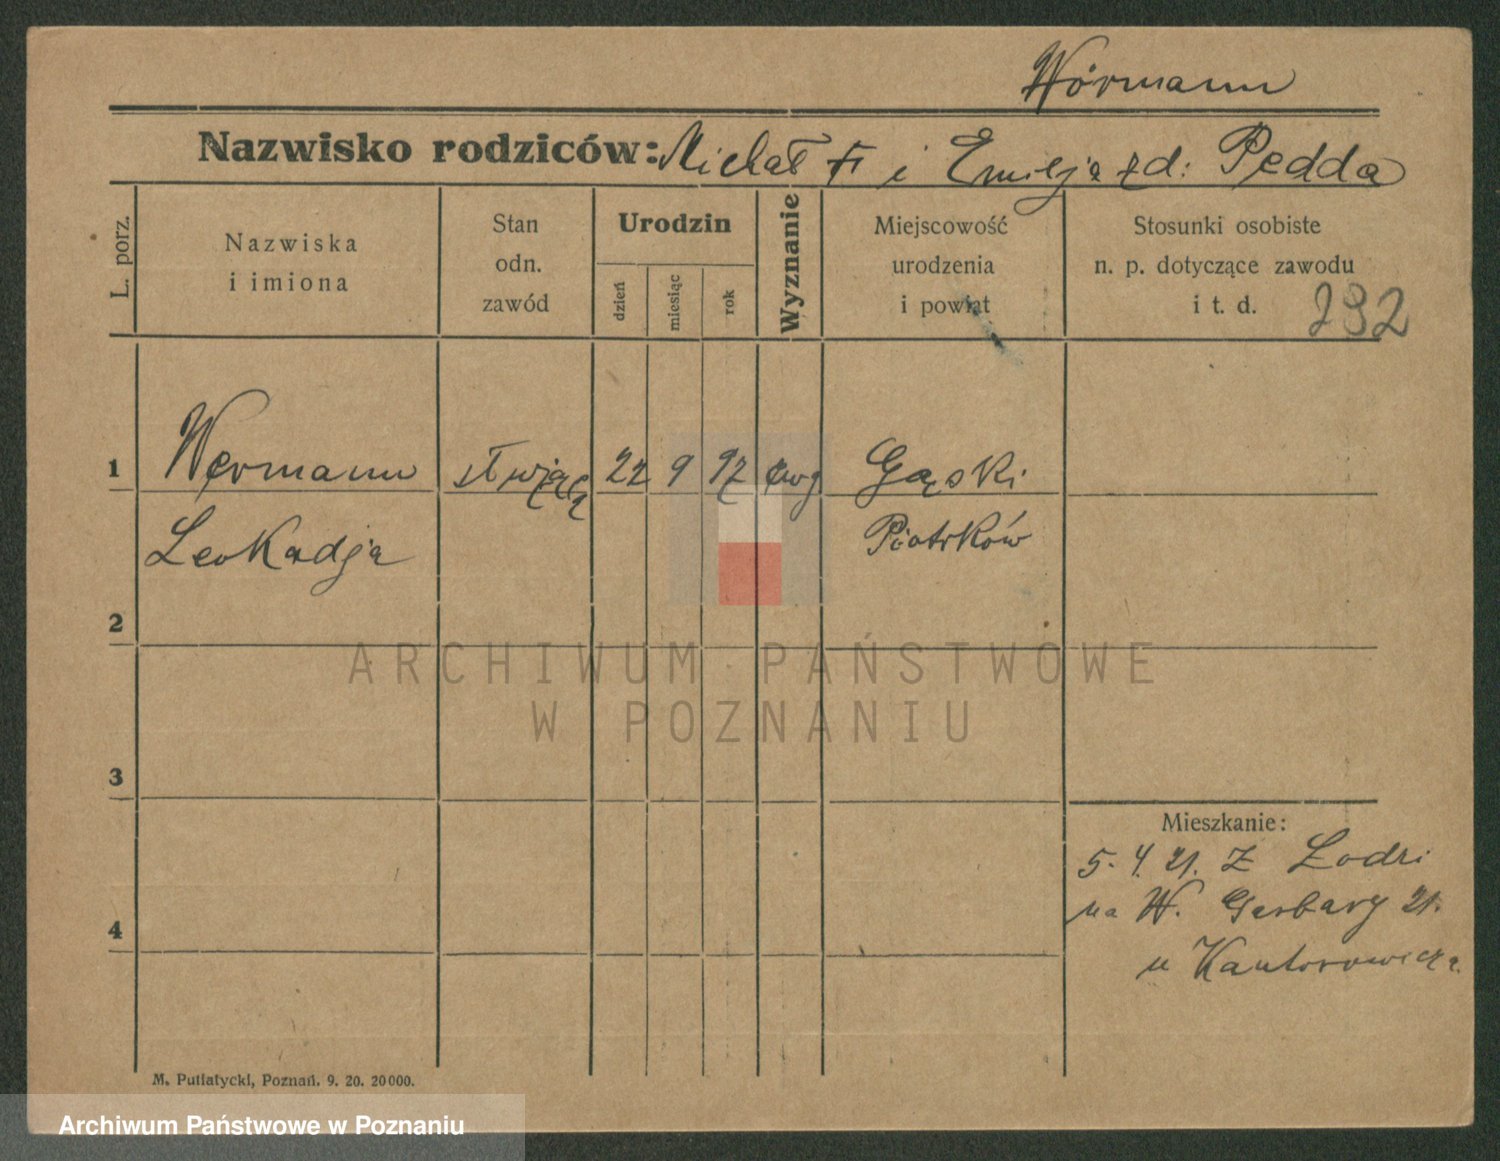 Wörmann
Nazwisko rodziców: Michał i Emilja zd: Pedda
L. porz.
Nazwiska
i imiona
Stan
odn.
zawód
Urodzin
dzień
miesiąc
rok
Wyznanie
Miejscowość
urodzenia
i powiat
Stosunki osobiste
n. p. dotyczące zawodu
i t. d.
292
1 Wermann służącą 22 9 97 ewg Gąski
Leokadja Piotrków
2
3
4
Mieszkanie:
5. 4. 21. Z Łodzi
na W. Garbary 21.
u Kantorowicza.
M. Putiatycki, Poznań. 9. 20. 20000.
ARCHIWUM PAŃSTWOWE
W POZNANIU
Archiwum Państwowe w Poznaniu